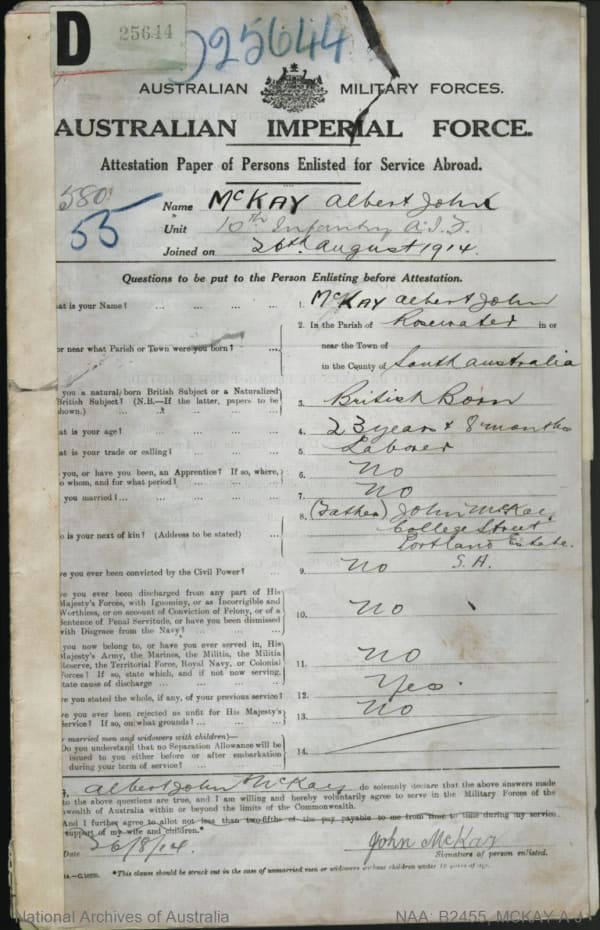 D
25644
25644
AUSTRALIAN MILITARY FORCES.
AUSTRALIAN IMPERIAL FORCE.
Attestation Paper of Persons Enlisted for Service Abroad.
580
55
Name McKAY Albert John
Unit 10th Infantry A.I.F.
Joined on 26th August 1914.
Questions to be put to the Person Enlisting before Attestation.
at is your Name? ... ... ... ... 1. McKAY Albert John
2. In the Parish of Rosewater in or
or near what Parish or Town were you born? ... near the Town of
in the County of South Australia
you a natural born British Subject or a Naturalized
British Subject? (N.B.—If the latter, papers to be
shown.) ... 3. British Born
at is your age? ... 4. 23 years & 8 months
at is your trade or calling? ... 5. Laborer
you, or have you been, an Apprentice? If so, where,
o whom, and for what period? ... 6. No
you married? ... 7. No
8. (Father) John McKay
College Street
o is your next of kin? (Address to be stated) ... Portland Estate.
S.A.
ve you ever been convicted by the Civil Power? ... 9. No
ve you ever been discharged from any part of His
Majesty's Forces, with Ignominy, or as Incorrigible and
Worthless, or on account of Conviction of Felony, or of a
Sentence of Penal Servitude, or have you been dismissed
with Disgrace from the Navy? ... 10. No
you now belong to, or have you ever served in, His
Majesty's Army, the Marines, the Militia, the Militia
Reserve, the Territorial Force, Royal Navy, or Colonial
Forces? If so, state which, and if not now serving,
state cause of discharge ... 11. No
ve you stated the whole, if any, of your previous service? 12. Yes.
ve you ever been rejected as unfit for His Majesty's
Service? If so, on what grounds? ... 13. No
r married men and widowers with children)—
Do you understand that no Separation Allowance will be
issued to you either before or after embarkation
during your term of service? ... 14.
I, Albert John McKay do solemnly declare that the above answers made
to the above questions are true, and I am willing and hereby voluntarily agree to serve in the Military Forces of the
wealth of Australia within or beyond the limits of the Commonwealth.
And I further agree to allot not less than two-fifths of the pay payable to me from time to time during my service
support of my wife and children.*
Date 26/8/14. John McKay
Signature of person enlisted.
*This clause should be struck out in the case of unmarried men or widowers without children under 18 years of age.
National Archives of Australia
NAA: B2455, MCKAY A J